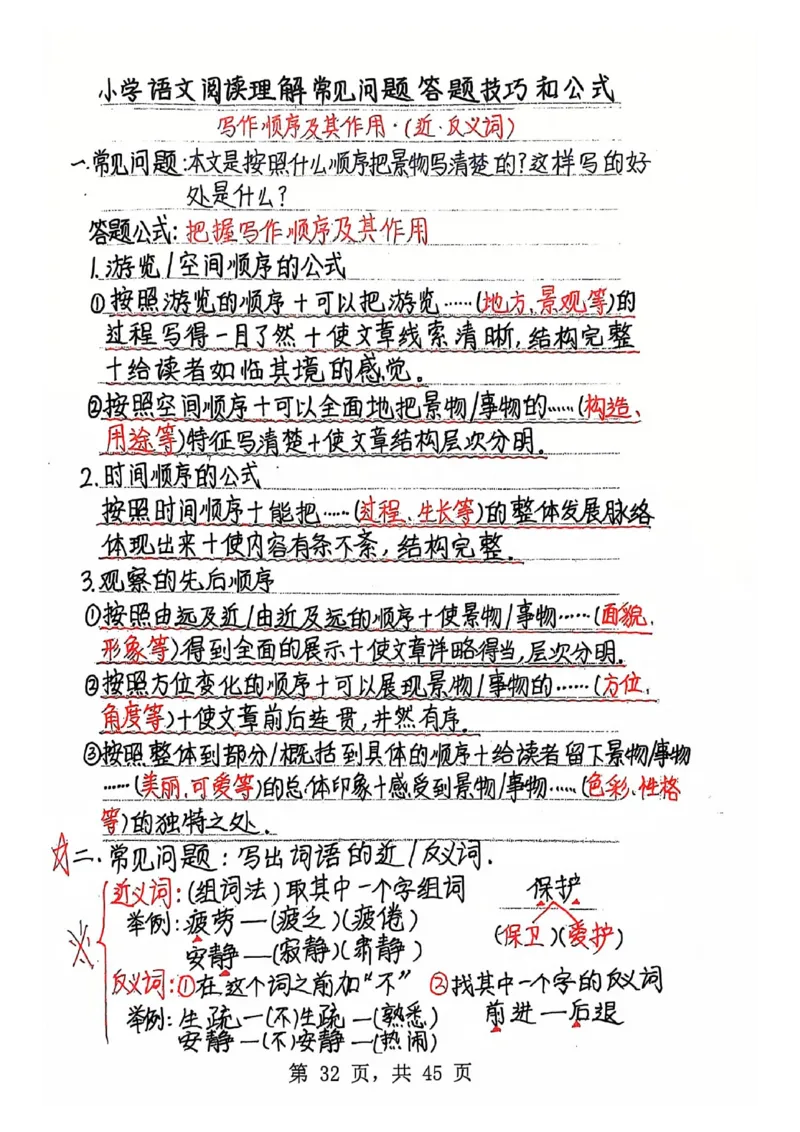 小学语文阅读理解常见问题答题技巧和公式
写作顺序及其作用·(近·反义词)
一.常见问题:本文是按照什么顺序把景物写清楚的?这样写的好
处是什么?
答题公式:把握写作顺序及其作用
1.游览/空间顺序的公式
①按照游览的顺序+可以把游览……(地方,景观等)的
过程写得一目了然+使文章线索清晰,结构完整
+给读者如临其境的感觉。
②按照空间顺序+可以全面地把景物/事物的……(构造、
用途等)特征写清楚+使文章结构层次分明。
2.时间顺序的公式
按照时间顺序+能把……(过程、生长等)的整体发展脉络
体现出来+使内容有条不紊,结构完整。
3.观察的先后顺序
①按照由远及近/由近及远的顺序+使景物/事物……(面貌,
形象等)得到全面的展示+使文章详略得当,层次分明。
②按照方位变化的顺序+可以展现景物/事物的……(方位,
角度等)+使文章前后连贯,井然有序。
③按照整体到部分/概括到具体的顺序+给读者留下景物/事物
……(美丽,可爱等)的总体印象+感受到景物/事物……(色彩,性格
等)的独特之处.
☆二.常见问题:写出词语的近/反义词.
近义词:(组词法)取其中一个字组词 保护
举例:疲劳—(疲乏)(疲倦) (保卫)(爱护)
安静—(寂静)(肃静)
反义词:①在这个词之前加“不” ②找其中一个字的反义词
举例:生疏—(不)生疏—(熟悉) 前进—后退
安静—(不)安静—(热闹)
第 32 页，共 45 页